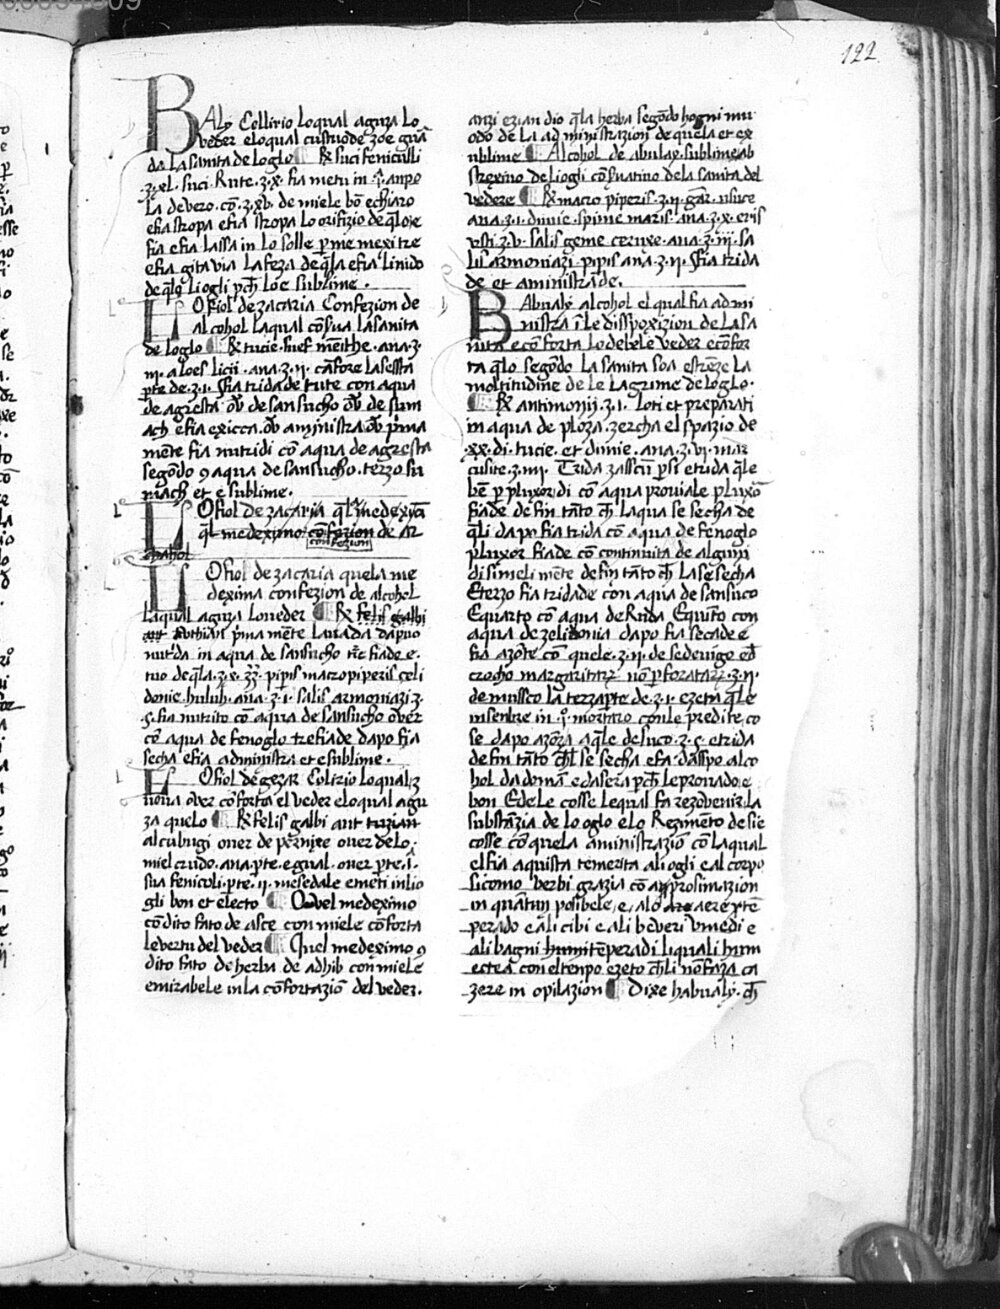 122
BAly Collirio loqual aguza lo
veder eloqual custuode zoe guā
da la sanita de loglo ¶ ℞ suci feniculli
.ʒ.xl. suci. Rute .ʒ.x. fia metu in .i. anpo
la de vero. cō .ʒ.xv. de miele bō e chiaro
e fia stropa e fia stropa lo orifizio de q̄lo e
fia e fia lassa in lo solle p̄ me mexi tre
e fia gita via la feza de q̄la e fia linido
de q̄lo li ogli pch̄ lo e sublime.
LO fiol de zacaria Confezion de
alcohol laqual cōsua la sanita
de loglo ¶ ℞ tucie. suef mēithe. ana .ʒ.
iij. aloes licii. ana .ʒ.ij. cāfore la sessta
p̄te de .ʒ.i. fia trida de tute con aqua
de agresta ov̄ de sansucho ov̄ de sum
ach e fia exicca. ov̄ aministra ov̄ p̄ma
mēte fia nutridi cō aqua de agresta
segōdo 9 aqua de sansucho. terzo su
mach et e sublime.
LO fiol de zacaria q̄l medexīā
q̄l medeximo confezion de al
confezion
cohol
LO fiol de zacaria quela me
dexima confezion de alcohol
laqual aguza lo veder ¶ ℞ felis galbi
aut p̄ma mēte lavada dapuo
nutrida in aqua de sansucho tre fiade e.
tuo de q̄la .ʒ.x. ʒʒ. pipis macropiperis celi
donie. huluh. ana .ʒ.i. salis armoniazi .ʒ.
.s. fia nutrito cō aqua de sansucho over
cō aqua de fenoglo tre fiade dapo fia
secha e fia administra et e sublime.
LO fiol de gezar Colirio loqual
nova over cōforta el veder eloqual agu
za quelo ¶ ℞ felis galbi aut tuzian
alcubugi over de p̄nixe over de lo.
miel crudo. ana. p̄te. egual. over p̄te .i.
sua fenicoli. p̄te. ij. mesedale e meti in li o
gli bon et electo ¶ Quel medeximo
cōdito fato de asce con miele cōforta
le vertu del veder ¶ Quel medeximo 9
dito fato de herba de adhib con miele
e mirabele in la cōfortaziō del veder.
anzi ezian dio q̄la herba segōdo hogni mu
odo de la administrazion de quela et e x
ublime ¶ Alcohol de abulay. sublime ab
strexivo de li ogli cōsuativo de la sanita del
vedere ¶ ℞ macro piperis .ʒ.ij. gar. usuce
ana .ʒ.i. dimie. spume maris. ana .ʒ.x. eris
usti .ʒ.v. salis geme ceruxe. ana .ʒ.iij. sa
lis armoniazi. pipis ana .ʒ.ij. fia trida
de et aministrade.
BAbualy alcohol el qual fia admi
nistra ī le dissposizion de la sa
nita e cōforta lo debele veder e cōfor
ta q̄lo segōdo la sanita soa e streze la
moltitudine de le lagrime de loglo.
¶ ℞ antimonij .ʒ.i. loti et preparati
in aqua de ploza. zercha el spazio de
.xx. di. tucie. et dimie. ana .ʒ.vi. mar
cusite .ʒ.iij. Trida zasscū p̄ si e trida q̄le
bē p pluxor di cō aqua proviale pluxo
fiade de fin tāto ch̄ laqua se secha de
q̄li dapo fia trida cō aqua de fenoglo
pluxor fiade cō continuita de alguni
di simeli mēte de fin tāto ch̄ la se secha
E terzo fia tridade con aqua de sansuco
E quarto cō aqua de Ruda E quīto con
aqua de zelidonia dapo fia secade e
fia azōte cō quele .ʒ.ij. de sedevige ed
crocho margaritarz nō p̄foratarz .ʒ.ij.
de mussco la terza p̄te de .ʒ.i. e zeta q̄le
insenbre in .i. mortaro con le predite co
se dapo azōza a q̄le de suco .ʒ.s. e trida
de fin tāto ch̄l se secha e fa dasspo alco
hol da domā e da sera pch̄ le provado e
bon E de le cosse lequal fa rezovenir la
substāzia de lo oglo e lo Regimēto de sie
cosse cō quela aministraziō cō laqual
el fia aquista temerita ali ogli e al corpo
sicomo verbi grazia cō aprosimazion
in quātum posibele, e, alo aere tē
perado e ali cibi e ali beveri umedi e
ali bagni humi tēperadi li quali hum
ectea con el tenpo ezeto ch̄ li nō faza ca
zere in opilazion ¶ Dixe habualy. ch̄